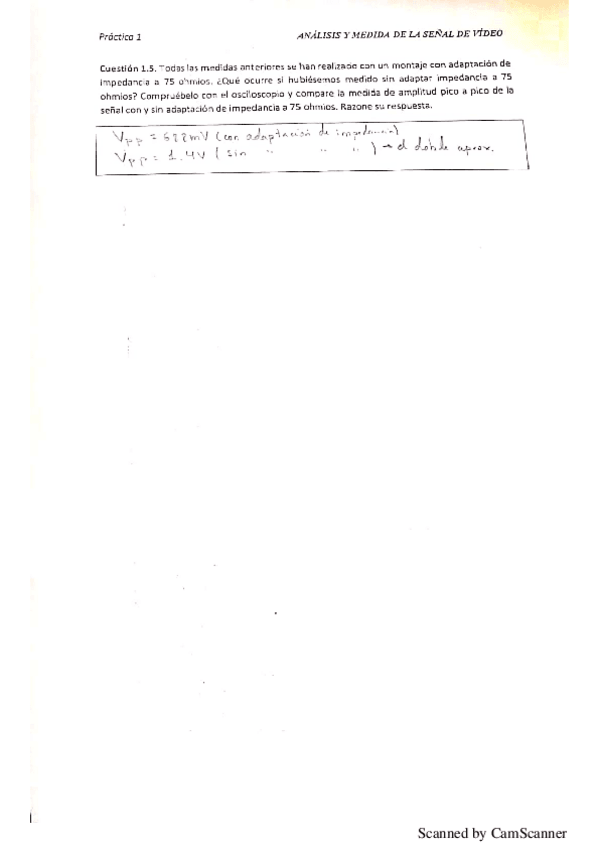 Práctica 1 ANÁLISIS Y MEDIDA DE LA SEÑAL DE VÍDEO
Cuestión 1.5. Todas las medidas anteriores se han realizado con un montaje con adaptación de
impedancia a 75 ohmios. ¿Qué ocurre si hubiésemos medido sin adaptar impedancia a 75
ohmios? Compruébelo con el osciloscopio y compare la medida de amplitud pico a pico de la
señal con y sin adaptación de impedancia a 75 ohmios. Razone su respuesta.
Vpp = mV (con adaptación de impedancia)
Vpp = 1.4V ( sin " " " ) → el doble aprox.
Scanned by CamScanner